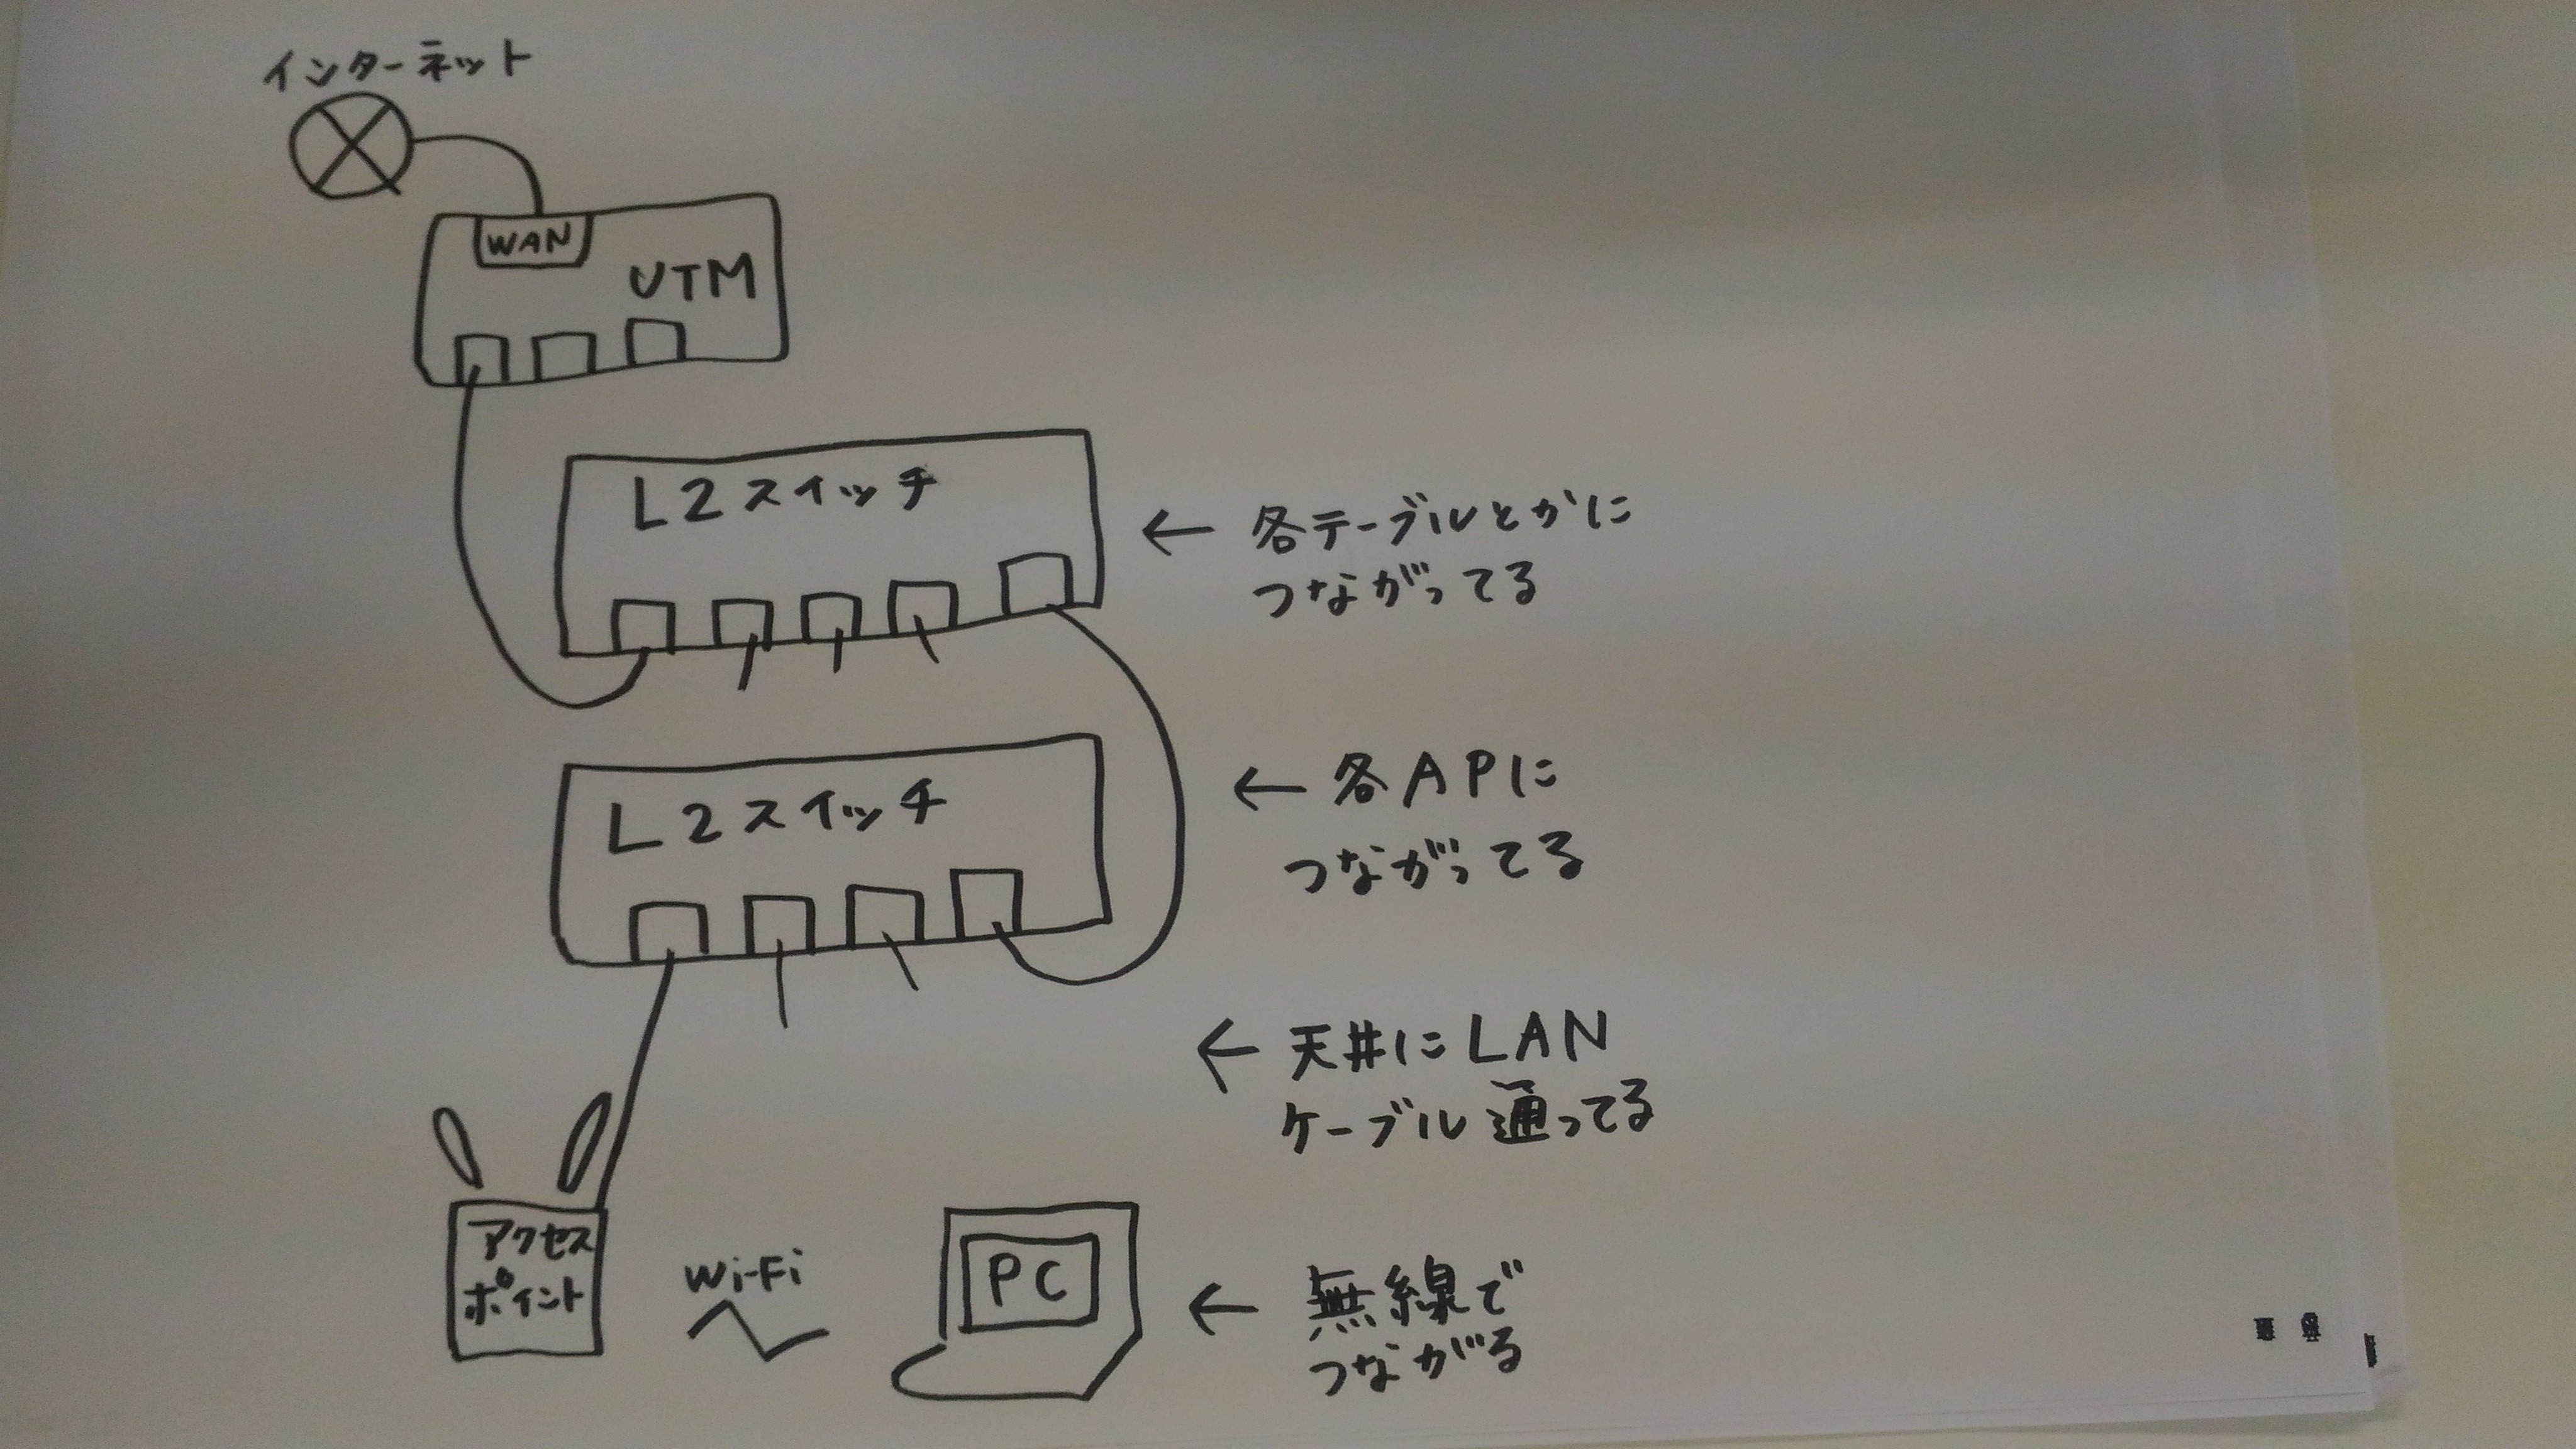 インターネット
WAN
UTM
L2スイッチ
← 各テーブルとかに
つながってる
L2スイッチ
← 各APに
つながってる
← 天井にLAN
ケーブル通ってる
アクセス
ポイント
Wi-Fi
PC
← 無線で
つながる